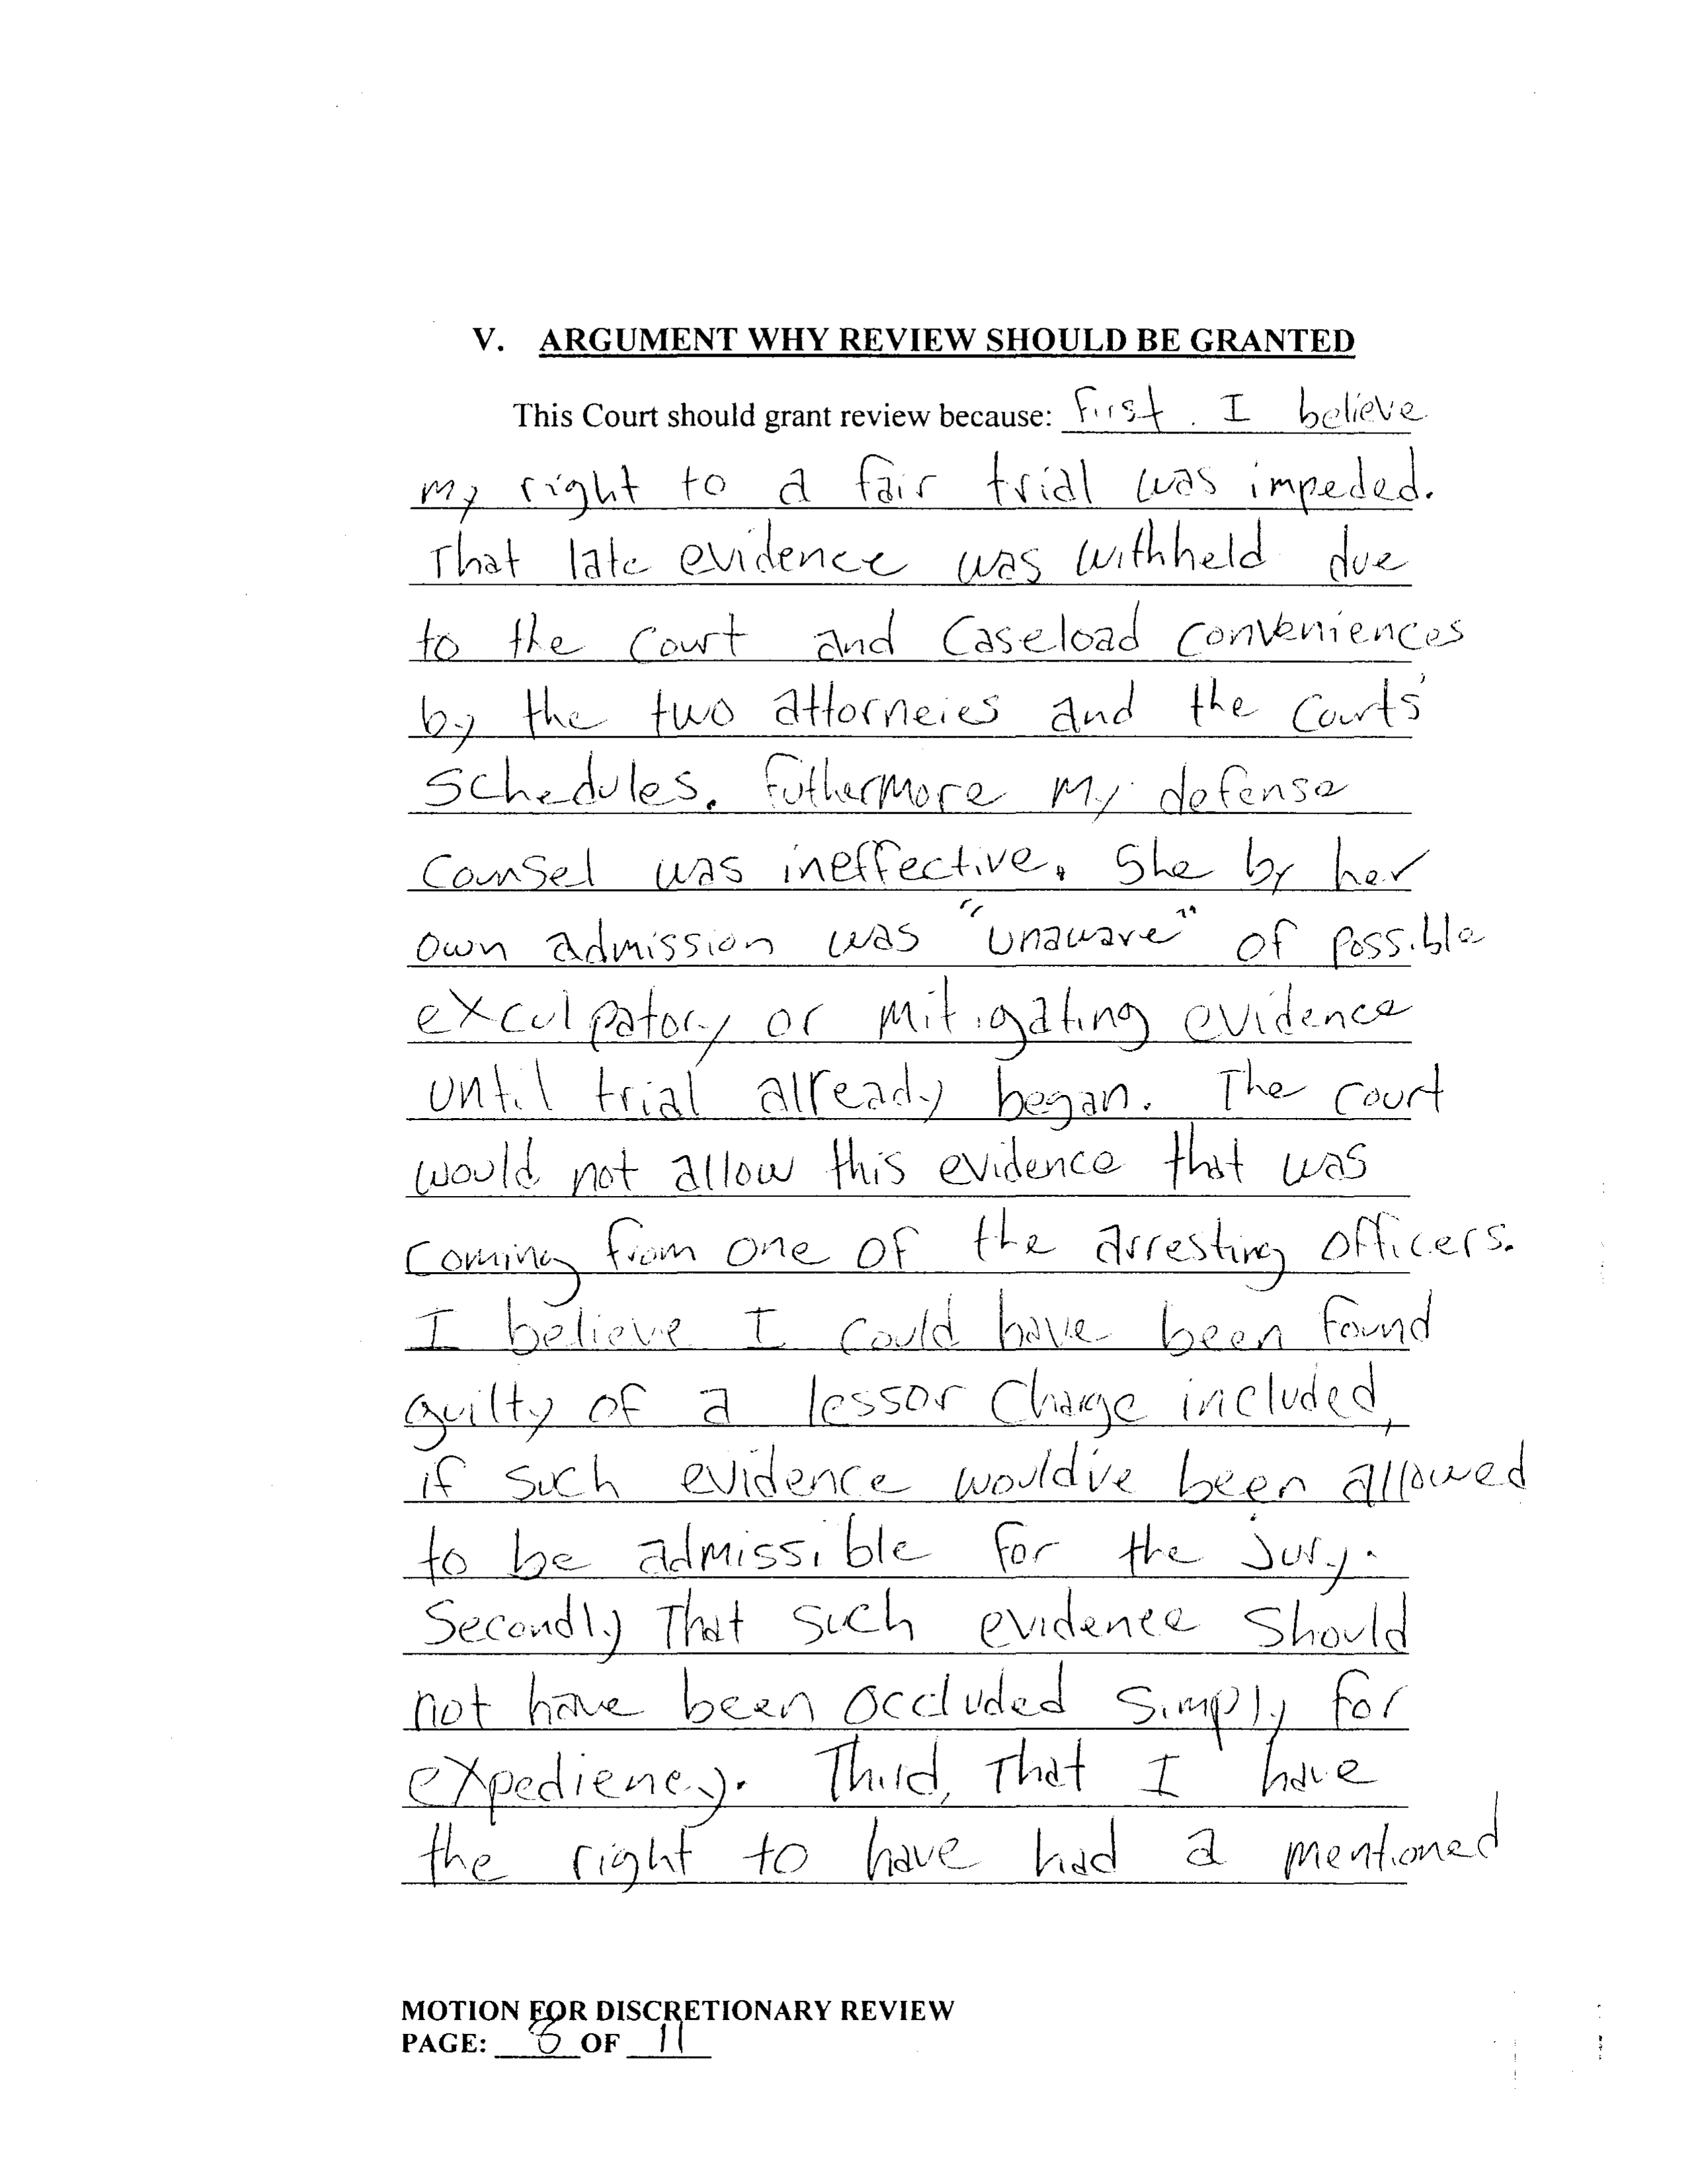 V. ARGUMENT WHY REVIEW SHOULD BE GRANTED
This Court should grant review because: First. I believe
my right to a fair trial was impeded.
That late evidence was withheld due
to the Court and Caseload conveniences
by the two attorneies and the Courts'
Schedules. Futhermore My defense
Counsel was ineffective. She by her
own admission was "unaware" of possible
exculpatory or mitigating evidence
until trial already began. The court
would not allow this evidence that was
coming from one of the arresting officers.
I believe I could have been found
guilty of a lessor Charge included,
if such evidence would've been allowed
to be admissible for the jury.
Secondly That such evidence should
not have been occluded simply for
expediency. Third, That I have
the right to have had a mentioned
MOTION FOR DISCRETIONARY REVIEW
PAGE: 8 OF 11